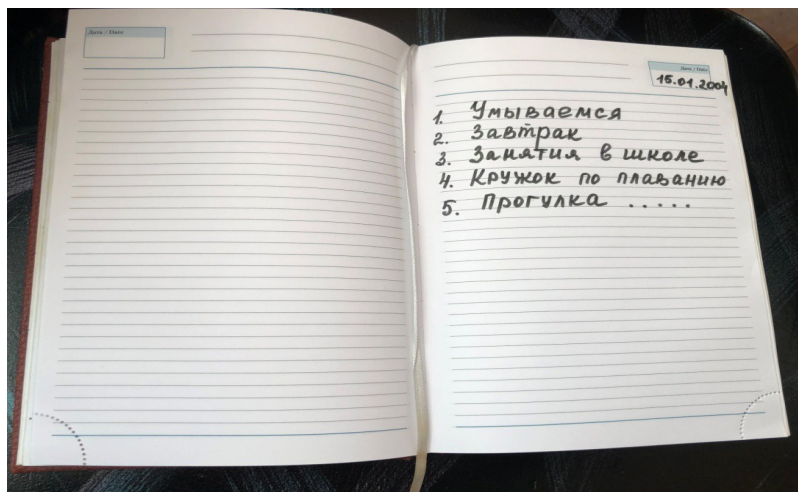 Дата / Date
Дата / Date
15.01.2004
1. Умываемся
2. Завтрак
3. Занятия в школе
4. Кружок по плаванию
5. Прогулка .....